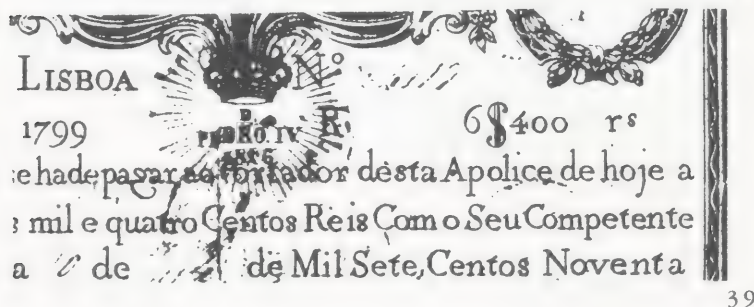 LISBOA Nº
1799 R. 6$400 rs
D.
PEDRO IV
1826
e hade pagar ao Portador désta Apolice de hoje a
s mil e quatro Centos Reis Com o Seu Competente
a de de Mil Sete, Centos Noventa
39